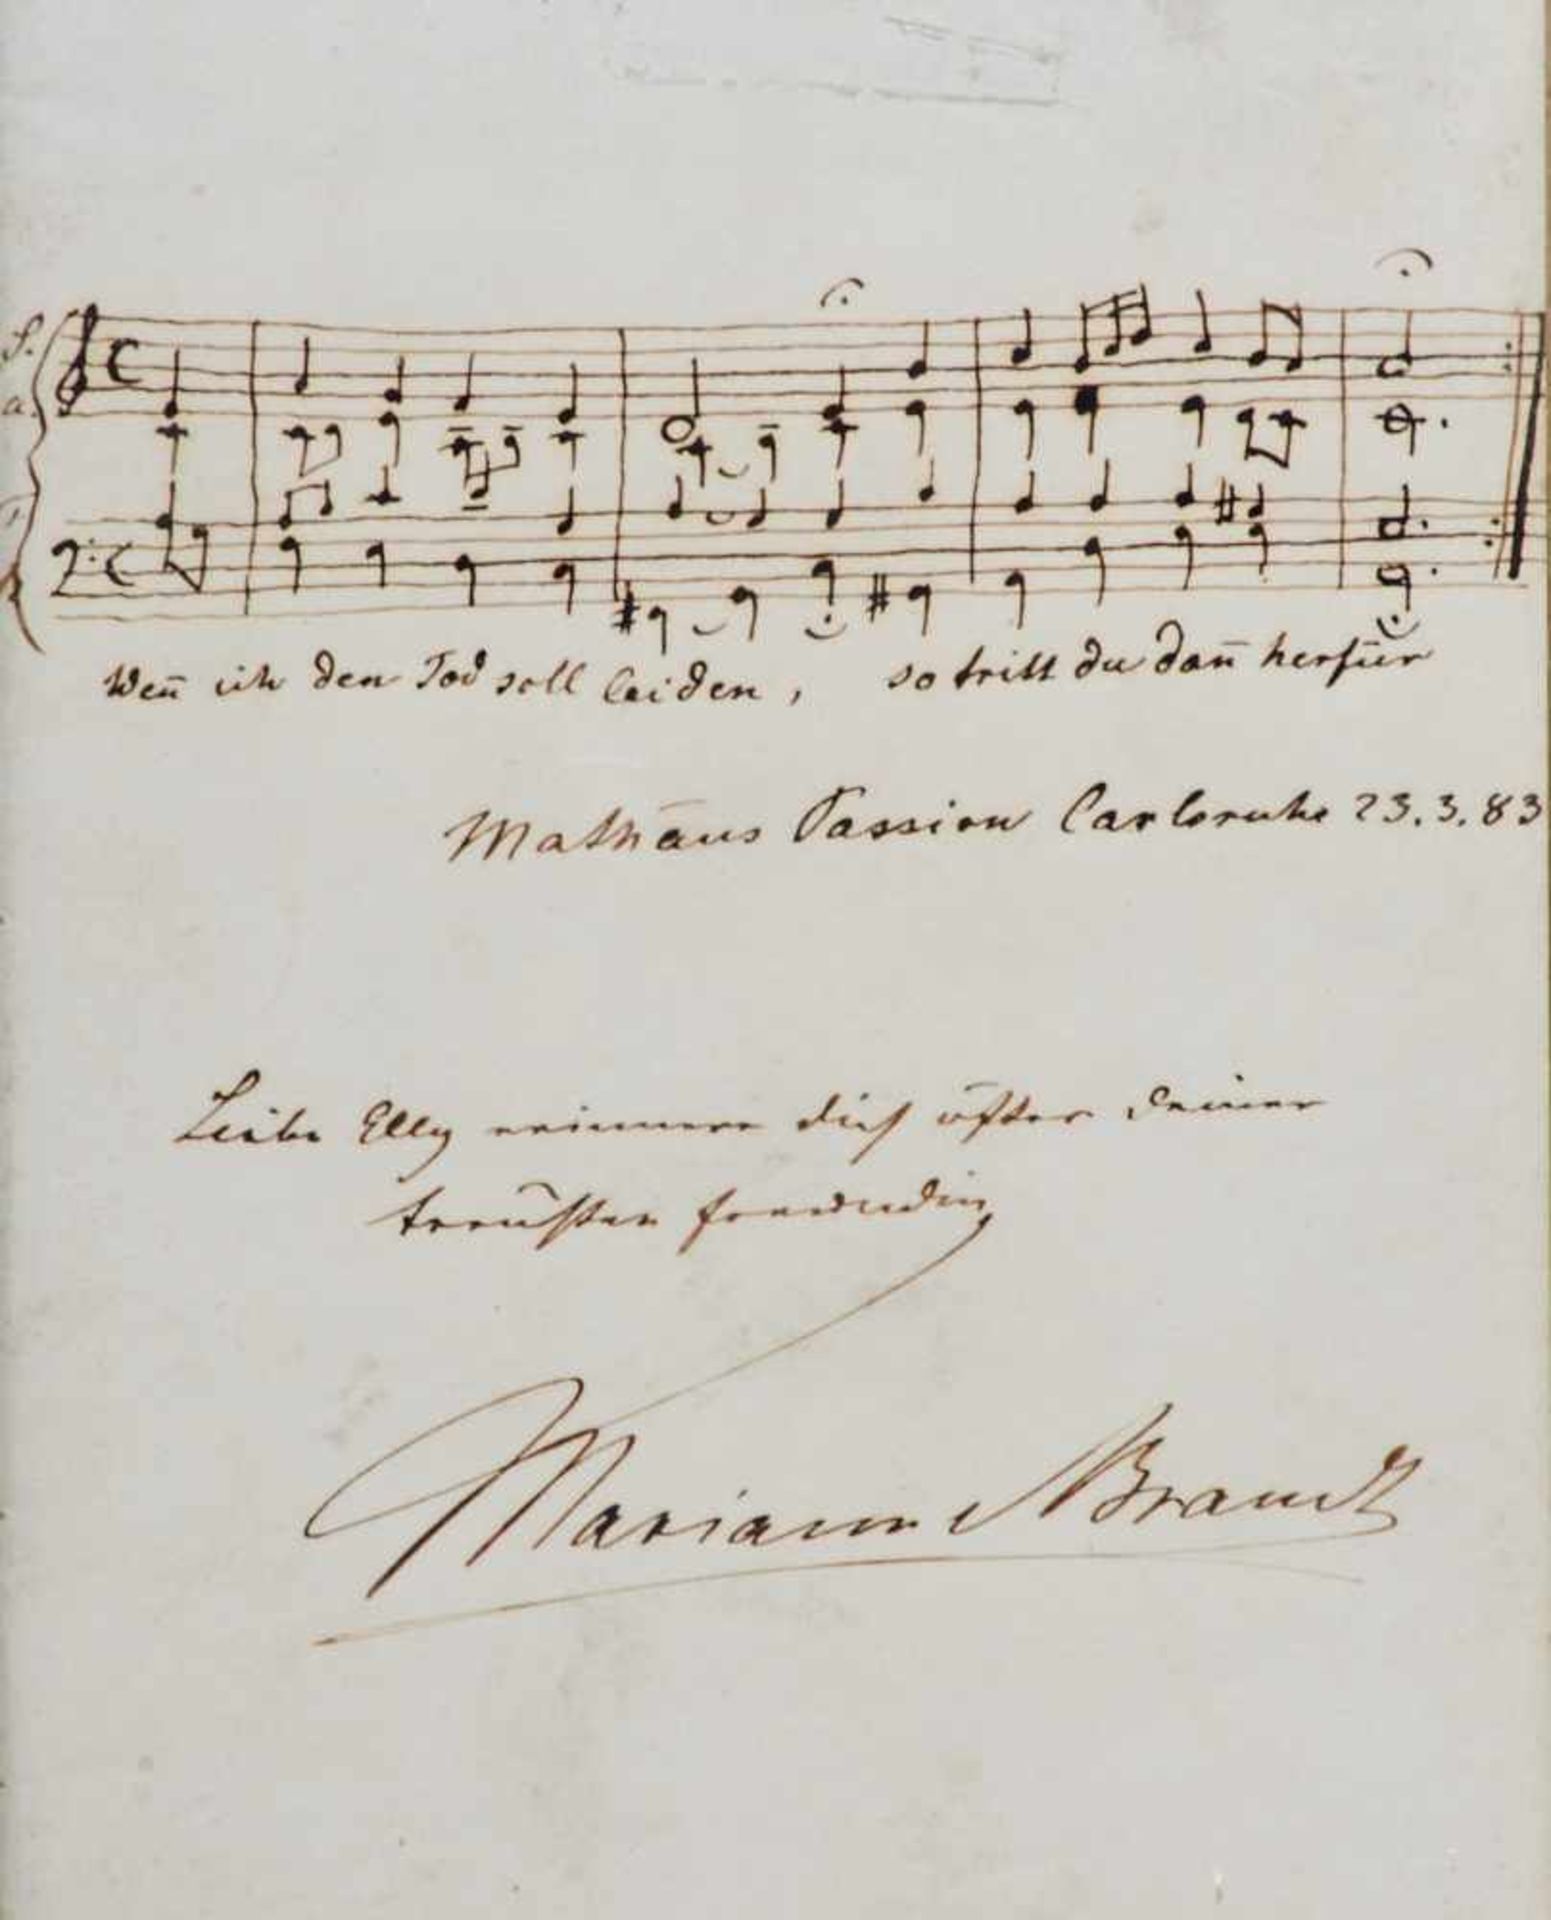 S.
a.
Weñ ich den Tod soll leiden, so tritt du dañ herfür
Mathäus Passion Carlsruhe 23.3.83
Liebe Elly erinnere dich öfter deiner
treusten Freundin
Marianne Brandt